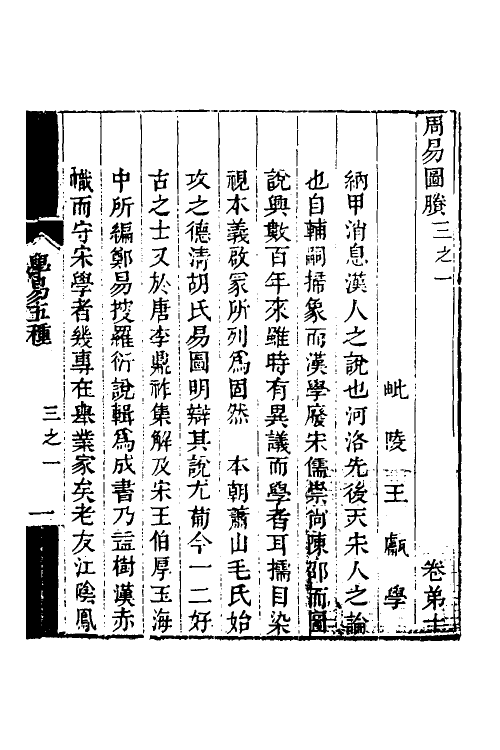 周易圖賸三之一 卷弟十
毗陵王甗學
納甲消息漢人之說也河洛先後天宋人之論
也自輔嗣掃象而漢學廢宋儒崇尙陳邵而圖
說興數百年來雖時有異議而學者耳擩目染
視本義啟蒙所列爲固然 本朝蕭山毛氏始
攻之德清胡氏易圖明辯其說尤葡今一二好
古之士又於唐李鼎祚集解及宋王伯厚玉海
中所編鄭易搜羅衍說輯爲成書乃益樹漢赤
幟而守宋學者幾專在舉業家矣老友江陰鳳
學易五種 三之一 一